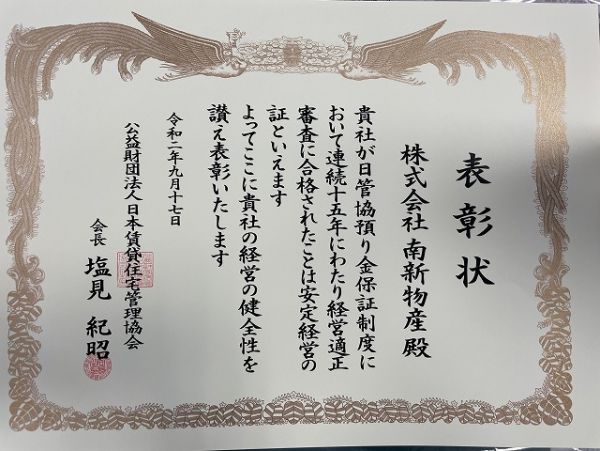 表彰状
株式会社 南新物産 殿
貴社が日管協預り金保証制度に
おいて連続十五年にわたり経営適正
審査に合格されたことは安定経営の
証といえます
よってここに貴社の経営の健全性を
讃え表彰いたします
令和二年九月十七日
公益財団法人日本賃貸住宅管理協会
会長 塩見 紀昭